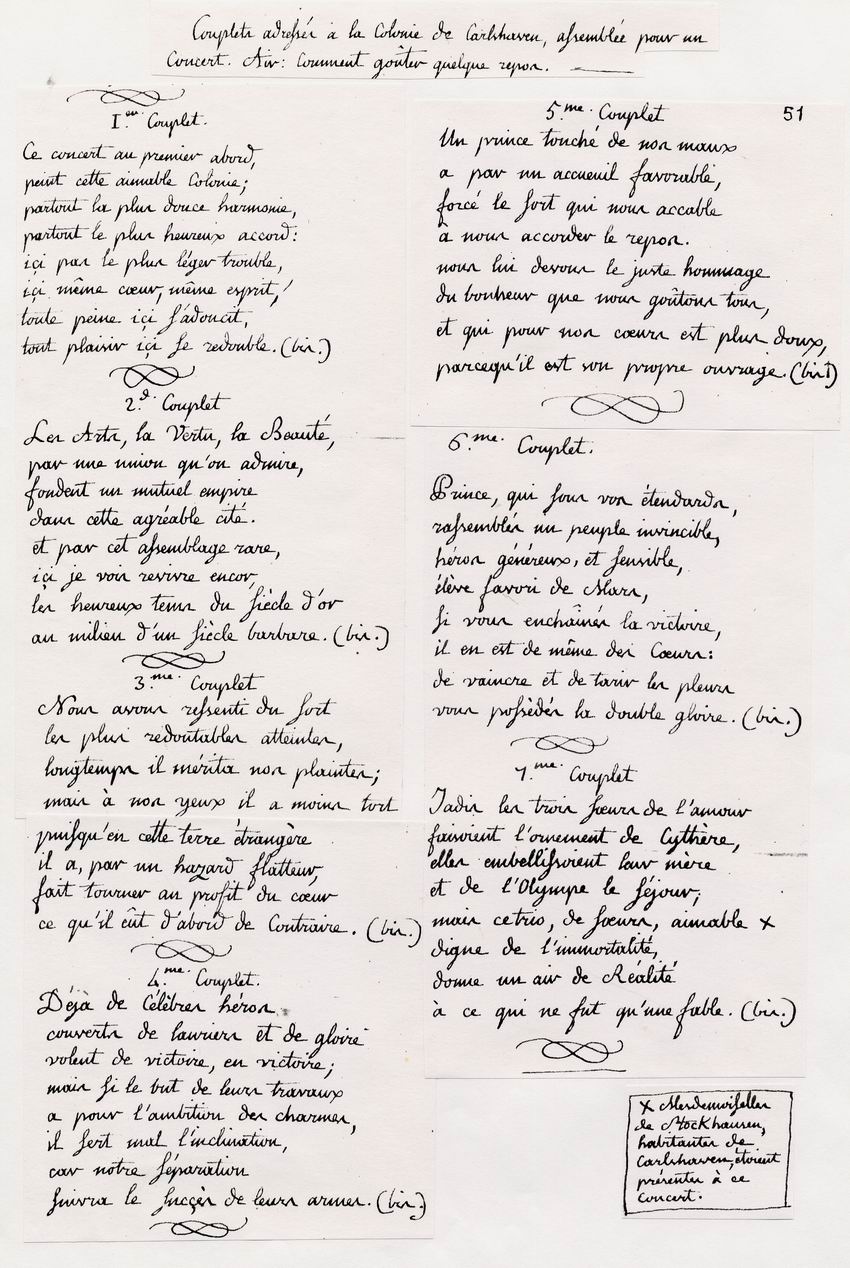 Couplets adressés à la Colonie de Carlshaven, assemblée pour un
Concert. Air: Comment goûter quelque repos.
1.er Couplet.
Ce concert au premier abord,
peint cette aimable Colonie;
partout la plus douce harmonie,
partout le plus heureux accord:
ici pas le plus léger trouble,
ici même cœur, même esprit,
toute peine ici s'adoucit,
tout plaisir ici se redouble. (bis.)
2.d Couplet
Les Arts, la Vertu, la Beauté,
par une union qu'on admire,
fondent un mutuel empire
dans cette agréable cité.
et par cet assemblage rare,
ici je vois revivre encor,
les heureux tems du siècle d'or
au milieu d'un siècle barbare. (bis.)
3.me. Couplet
Nous avons ressenti du sort
les plus redoutables atteintes,
longtemps il mérita nos plaintes;
mais à nos yeux il a moins tort
puisqu'en cette terre étrangère
il a, par un hazard flatteur,
fait tourner au profit du cœur
ce qu'il eût d'abord de Contraire. (bis.)
4.me. Couplet.
Déjà de Célèbres héros
couverts de lauriers et de gloire
volent de victoire, en victoire;
mais si le but de leurs travaux
a pour l'ambition des charmes,
il sert mal l'inclination,
car notre séparation
suivra le succès de leurs armes. (bis.)
5.me. Couplet
51
Un prince touché de nos maux
a par un accueuil favorable,
forcé le sort qui nous accable
à nous accorder le repos.
nous lui devons le juste hommage
du bonheur que nous goûtons tous,
et qui pour nos cœurs est plus doux,
parcequ'il est son propre ouvrage. (bis)
6.me. Couplet.
Prince, qui sous vos étendards,
rassemblés un peuple invincible,
héros généreux, et sensible,
élève favori de Mars,
si vous enchaînés la victoire,
il en est de même des Cœurs:
de vaincre et de tarir les pleurs
vous possédés la double gloire. (bis.)
7.me. Couplet
Jadis les trois sœurs de l'amour
faisoient l'ornement de Cythère,
elles embellissoient leur mère
et de l'Olympe le séjour;
mais cetrio, de sœurs, aimable x
digne de l'immortalité,
donne un air de Réalité
à ce qui ne fut qu'une fable. (bis.)
x Mesdemoiselles
de Stockhausen,
habitantes de
Carlshaven, étoient
présentes à ce
Concert.